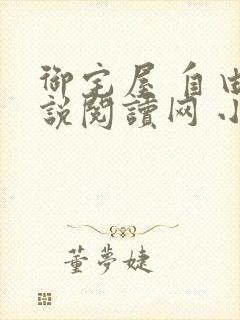 御宅屋 自由
說閱讀网 小
董夢婕